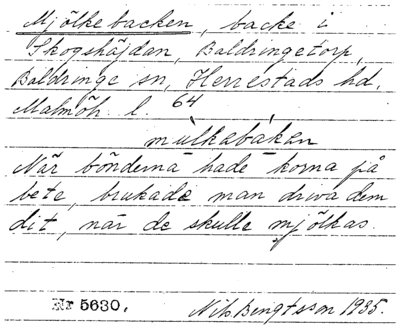 Mjölkebacken, backe i
Skogshäjdan, Baldringetorp,
Baldringe sn, Herrestads hd,
Malmöh. l. 64
mulkebáken
När bönderna hade korna på
bete, brukade man driva dem
dit, när de skulle mjölkas.
Nr 5630.
Nils Bengtsson 1935.